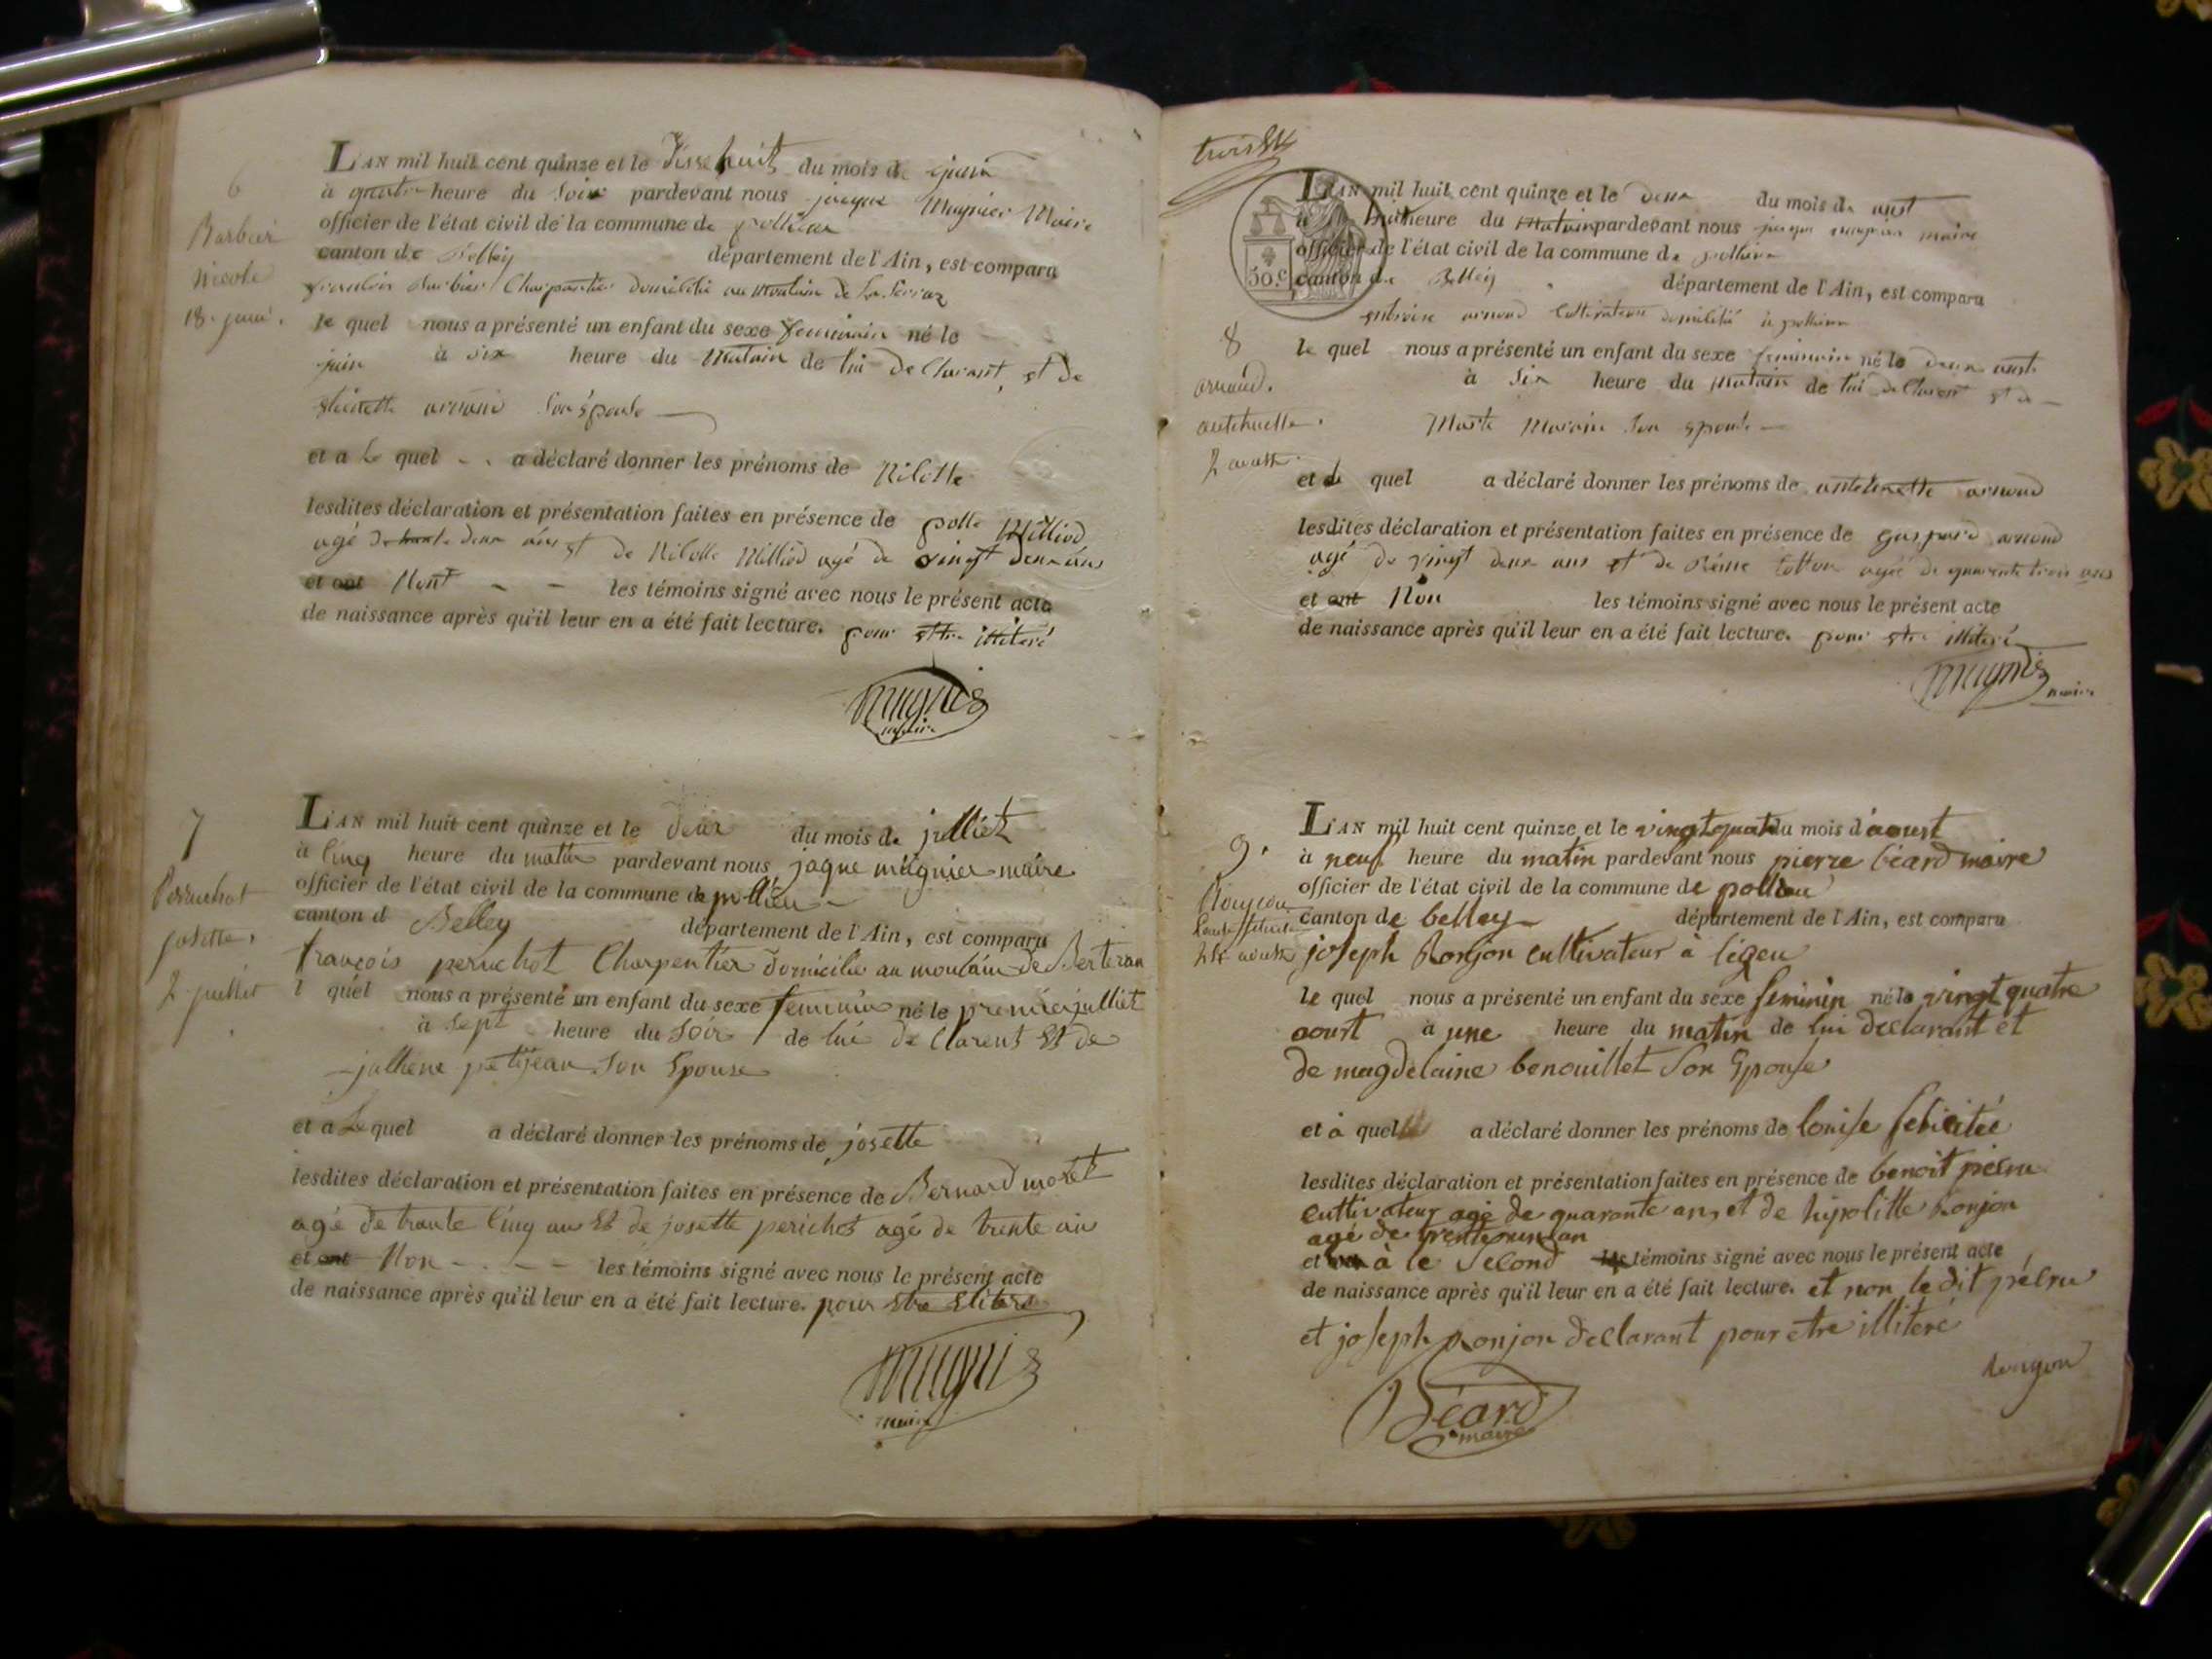 6
Barbier
Nicole
18. juin.
L'AN mil huit cent quinze et le disse huit du mois de juin
à quatre heure du soir pardevant nous jaque Mugnier Maire
officier de l'état civil de la commune de pollieu
canton de Belley département de l'Ain, est comparu
Barbier Charpantier domicilié au moulain de
le quel nous a présenté un enfant du sexe feminain né le
juin à six heure du matain de lui declarant et de
son épouse
et a le quel a déclaré donner les prénoms de Nilolle
lesdites déclaration et présentation faites en présence de polle Milliod
agé de deux ans et de Nilolle Milliod agé de vingt deux ans
et ont Nont les témoins signé avec nous le présent acte
de naissance après qu'il leur en a été fait lecture. pour ettre illiteré
mugnier
maire
7
Perruchot
josette,
2. juillet
L'AN mil huit cent quinze et le deux du mois de julliet
à cinq heure du matin pardevant nous jaque mugnier maire
officier de l'état civil de la commune de pollieu
canton d Belley département de l'Ain, est comparu
françois peruchot Charpentier domicilié au moulain de Berteran
l quel nous a présenté un enfant du sexe feminin né le premier julliet
à sept heure du soir de lui de Clarent Et de
petijean son Epouse
et a Le quel a déclaré donner les prénoms de josette
lesdites déclaration et présentation faites en présence de Bernard moret
agé de trante cinq an Et de josette perichot agé de trente an
et ont Non les témoins signé avec nous le présent acte
de naissance après qu'il leur en a été fait lecture. pour Etre
mugnier
maire
trois
50.c
8
arnaud.
2 aoust.
L'AN mil huit cent quinze et le deux du mois de aust
à huit heure du matain pardevant nous jaque mugnier maire
officier de l'état civil de la commune de pollieu
canton de Belley département de l'Ain, est comparu
arnaud Cultivateur domicilié à pollieu
le quel nous a présenté un enfant du sexe feminain né le deux aust
à six heure du matain de lui declarent et de
Marte son epouse
et le quel a déclaré donner les prénoms de arnoud
lesdites déclaration et présentation faites en présence de gaspard arnoud
agé de vingt deux ans et de agé de quarente trois ans
et ont Non les témoins signé avec nous le présent acte
de naissance après qu'il leur en a été fait lecture. pour etre illiteré
mugnier
maire
9.
24 aoust
L'AN mil huit cent quinze et le vingtquatre du mois d'aoust
à neuf heure du matin pardevant nous pierre béard maire
officier de l'état civil de la commune de pollieu
canton de belley département de l'Ain, est comparu
joseph Ronjon cultivateur à Légeu
le quel nous a présenté un enfant du sexe feminin né le vingt quatre
aoust à une heure du matin de lui declarant et
de magdelaine benouillet son Epouse
et à quel a déclaré donner les prénoms de louise felicitée
lesdites déclaration et présentation faites en présence de benoit pélru
cultivateur agé de quarante ans, et de hipolitte Ronjon
agé de
et à le second les témoins signé avec nous le présent acte
de naissance après qu'il leur en a été fait lecture. et non le dit pélru
et joseph Ronjon declarant pour etre illiteré
Rongon
Béard
maire